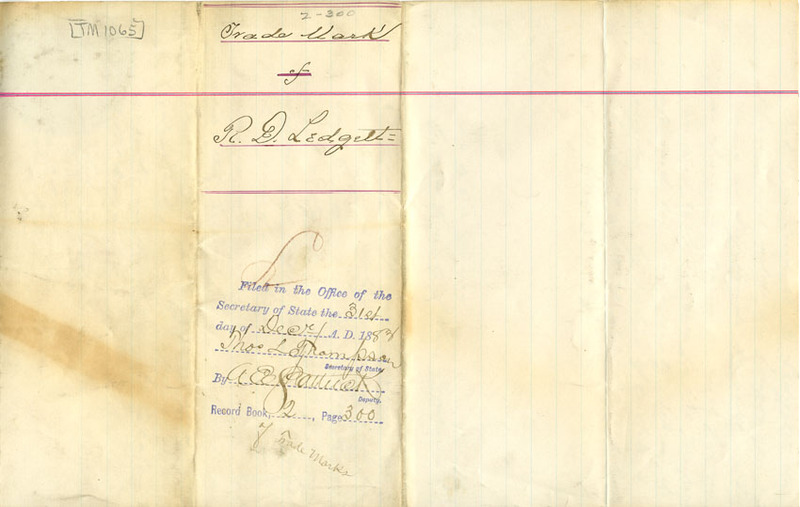 [TM 1065]
2-300
Trade Mark
of
R. D. Ledgett=
Filed in the Office of the
Secretary of State the 31st
day of Decr A. D. 188
Thos L Thompson
Secretary of State
By A. E.
Deputy.
Record Book, 2, Page 300
of Trade Marks